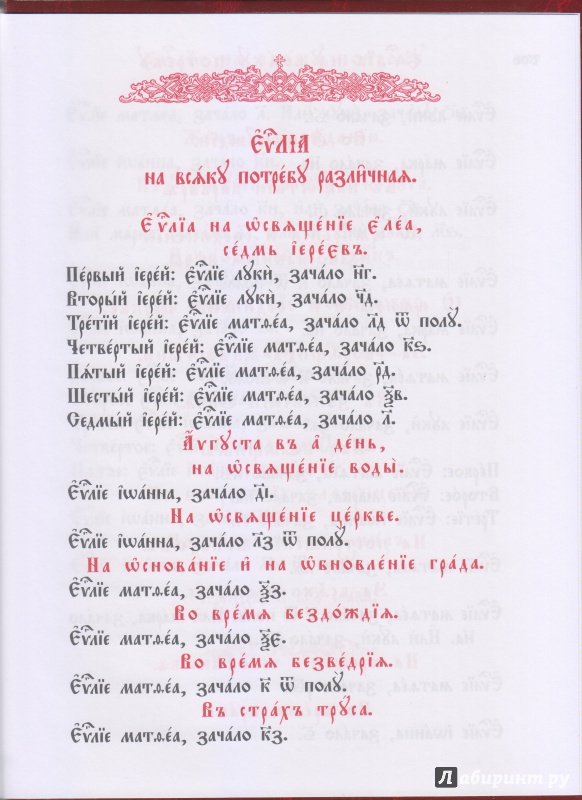 Є҆ѵⷢ҇лїа
на всѧ́кꙋ потре́бꙋ разли́чнаѧ.
Є҆ѵⷢ҇лїа на ѡ҆свѧще́нїе є҆ле́а,
се́дмь і҆ере́євъ.
Пе́рвый і҆ере́й: є҆ѵⷢ҇лїе лꙋкѝ, зача́ло н҃г.
Вторы́й і҆ере́й: є҆ѵⷢ҇лїе лꙋкѝ, зача́ло ч҃д.
Тре́тїй і҆ере́й: є҆ѵⷢ҇лїе матѳе́а, зача́ло л҃д ѿ полꙋ̀.
Четве́ртый і҆ере́й: є҆ѵⷢ҇лїе матѳе́а, зача́ло к҃ѕ.
Пѧ́тый і҆ере́й: є҆ѵⷢ҇лїе матѳе́а, зача́ло р҃д.
Шесты́й і҆ере́й: є҆ѵⷢ҇лїе матѳе́а, зача́ло ѯ҃в.
Седмы́й і҆ере́й: є҆ѵⷢ҇лїе матѳе́а, зача́ло л҃.
А҆́ѵгꙋста въ а҃ де́нь,
на ѡ҆свѧще́нїе воды̀.
Є҆ѵⷢ҇лїе і҆ѡа́нна, зача́ло д҃і.
На ѡ҆свѧще́нїе це́ркве.
Є҆ѵⷢ҇лїе і҆ѡа́нна, зача́ло л҃з ѿ полꙋ̀.
На ѡ҆снова́нїе и҆ на ѡ҆бновле́нїе гра́да.
Є҆ѵⷢ҇лїе матѳе́а, зача́ло ѯ҃з.
Во вре́мѧ бездо́ждїѧ.
Є҆ѵⷢ҇лїе матѳе́а, зача́ло ѯ҃є.
Во вре́мѧ безве́дрїѧ.
Є҆ѵⷢ҇лїе матѳе́а, зача́ло к҃ ѿ полꙋ̀.
Въ стра́хъ трꙋ́са.
Є҆ѵⷢ҇лїе матѳе́а, зача́ло к҃з.
Лабиринт.ру